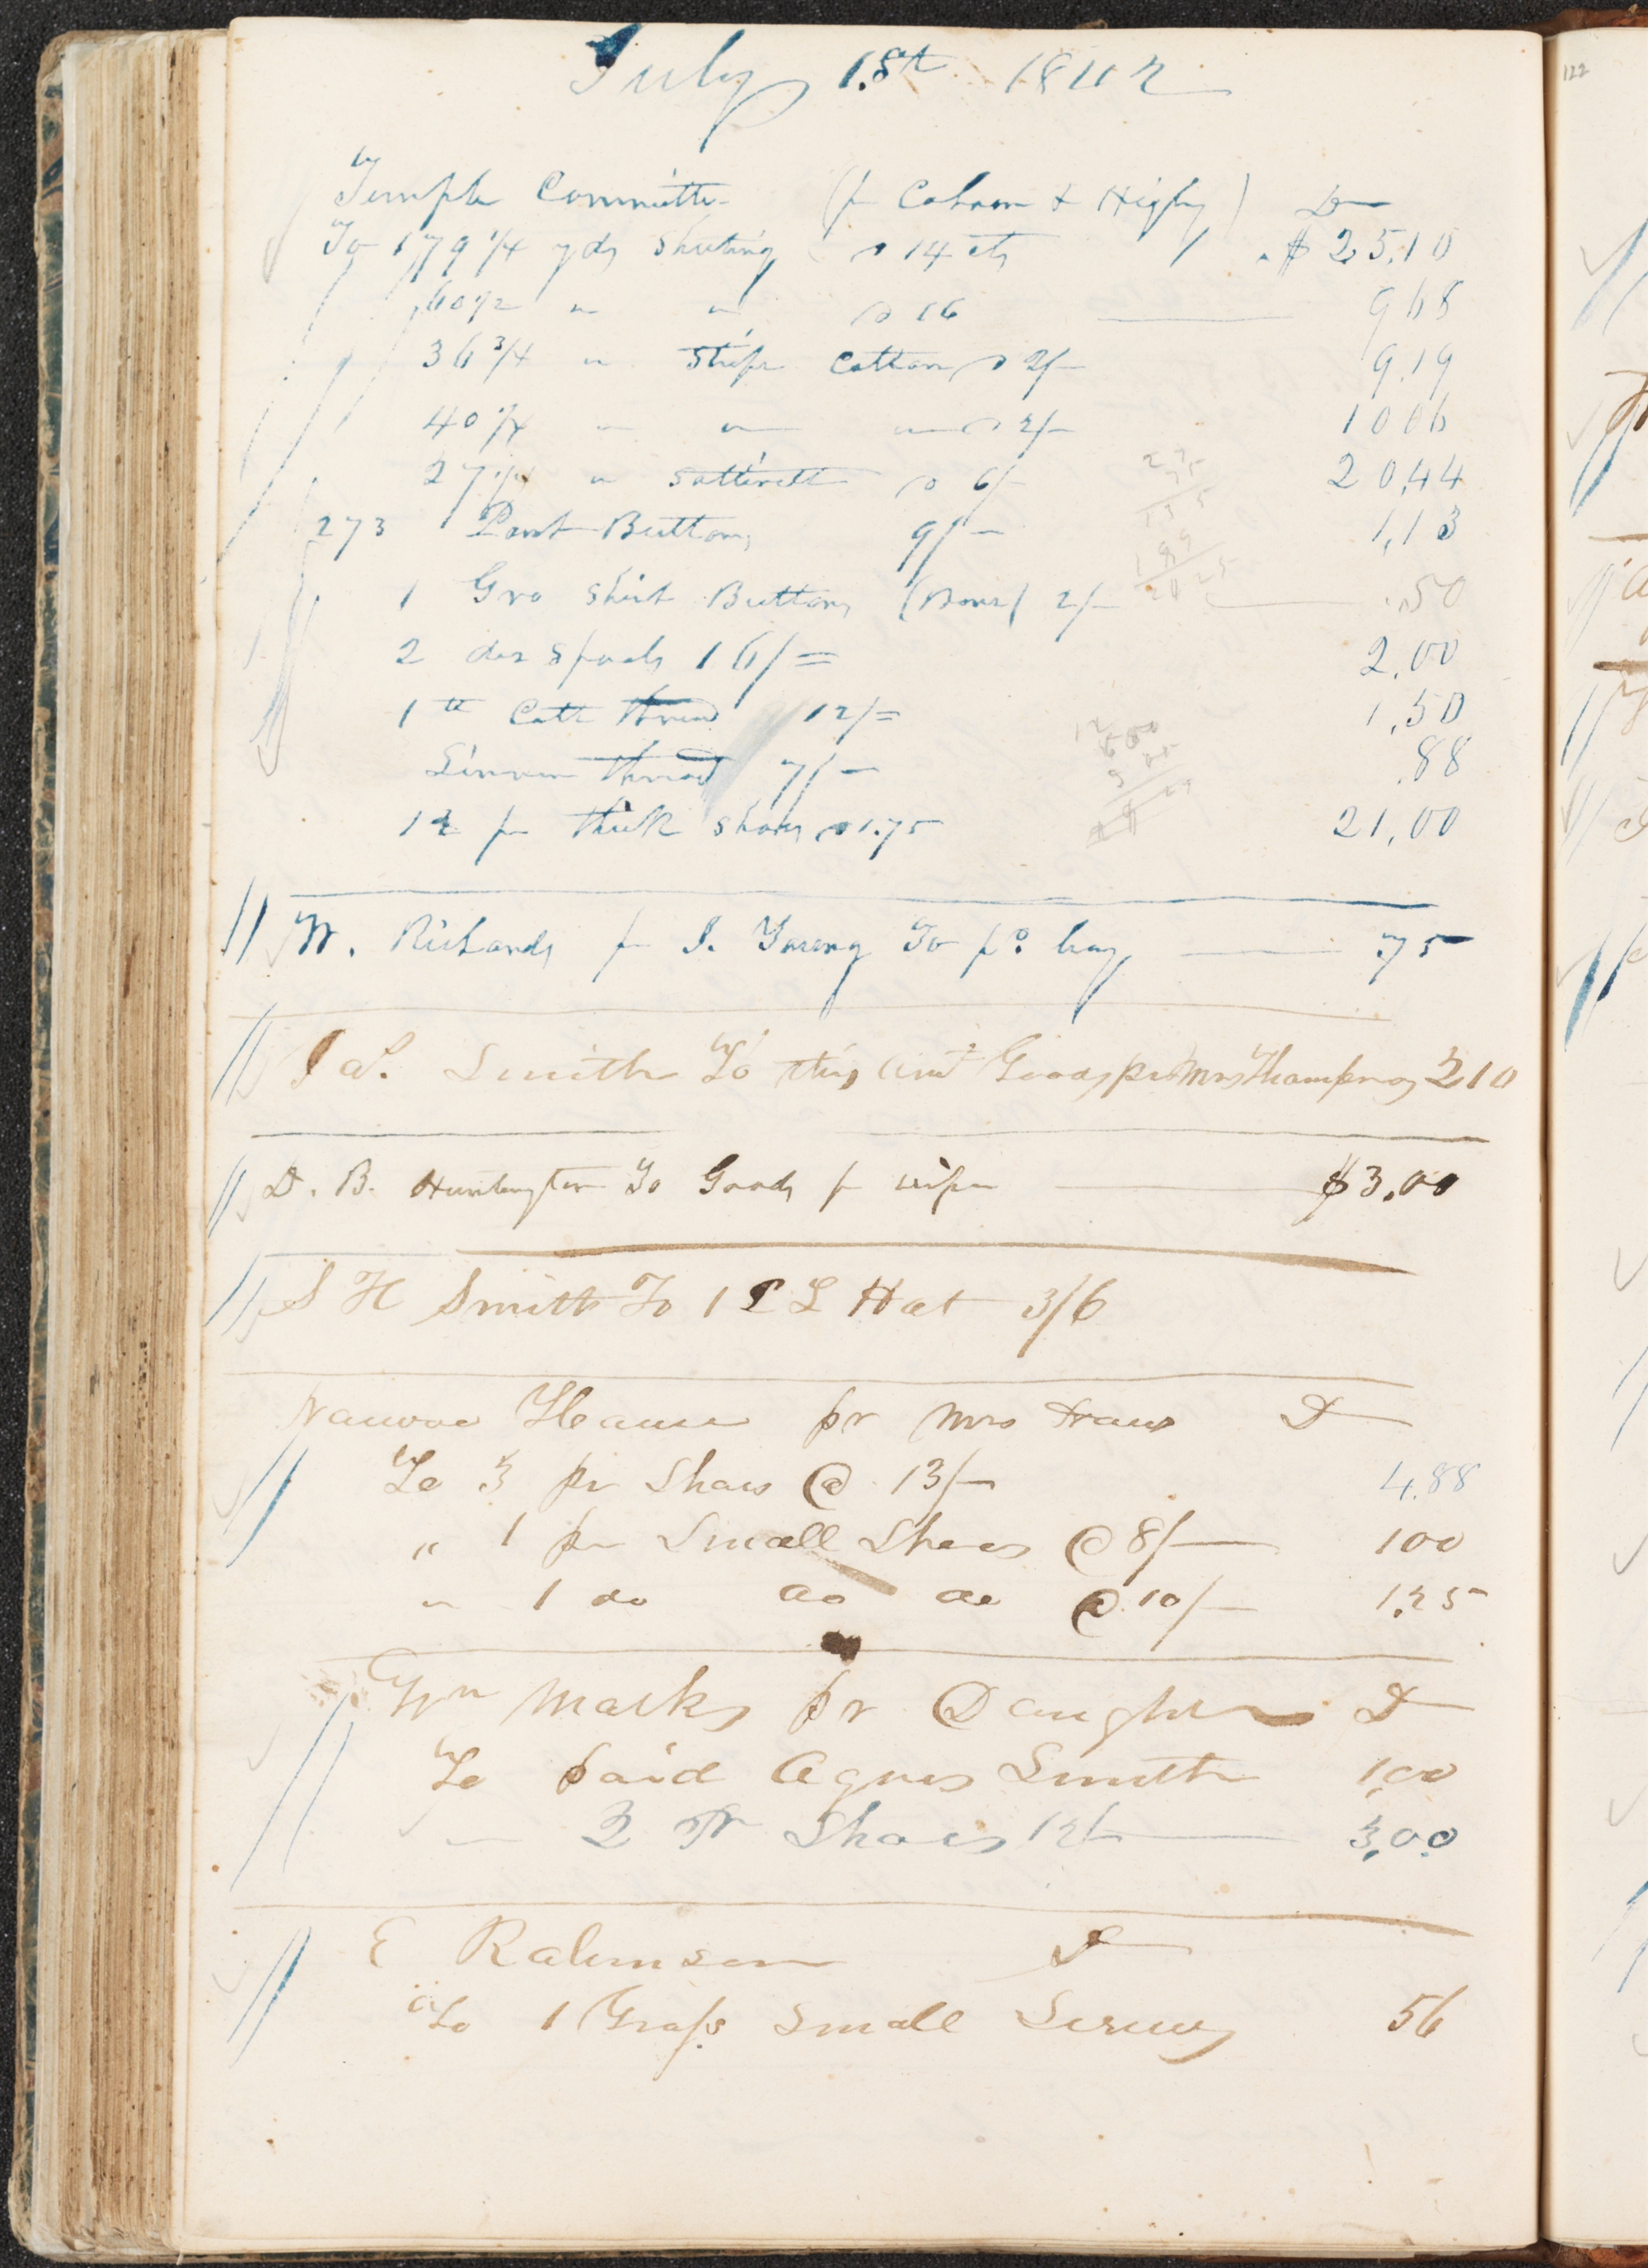 July 1.st 1842
Temple Committe (pr Cahoon & Higby) Dr
To 179 1/4 yds Sheeting @ 14 cts $ 25.10
60 1/2 " " @ 16 968
36 3/4 " Stripe Cotton @ 2/- 9.19
40 1/4 " " " @ 2/- 1006
27 1/4 " Sattinett @ 6/- 20,44
273 Pant Buttons 9/- 1,13
1 Gro Shirt Buttons (Bone) 2/- .50
2 doz Spools 16/= 2.00
1 lb Cott thread 12/= 1,50
Linnen thread 7/- .88
12 pr thick Shoes @ 1.75 21,00
W. Richards pr J. Young To pd hay .75
Jos. Smith To this amt Goods pr Mrs Thompson 210
D. B. Huntington To Goods pr wife $3.00
S H Smith To 1 P L Hat 3/6
Nauvoo House pr Mrs Dr
To 3 pr Shoes @ 13/- 4.88
" 1 pr Small Shoes @ 8/- 100
" 1 do do do @ 10/- 1.25
Wm Marks pr Daughter Dr
To paid Agnes Smith 1,00
" 2 Pr Shoes 12/- 3,00
E Robinson Dr
To 1 Gross Small Screws 56
122